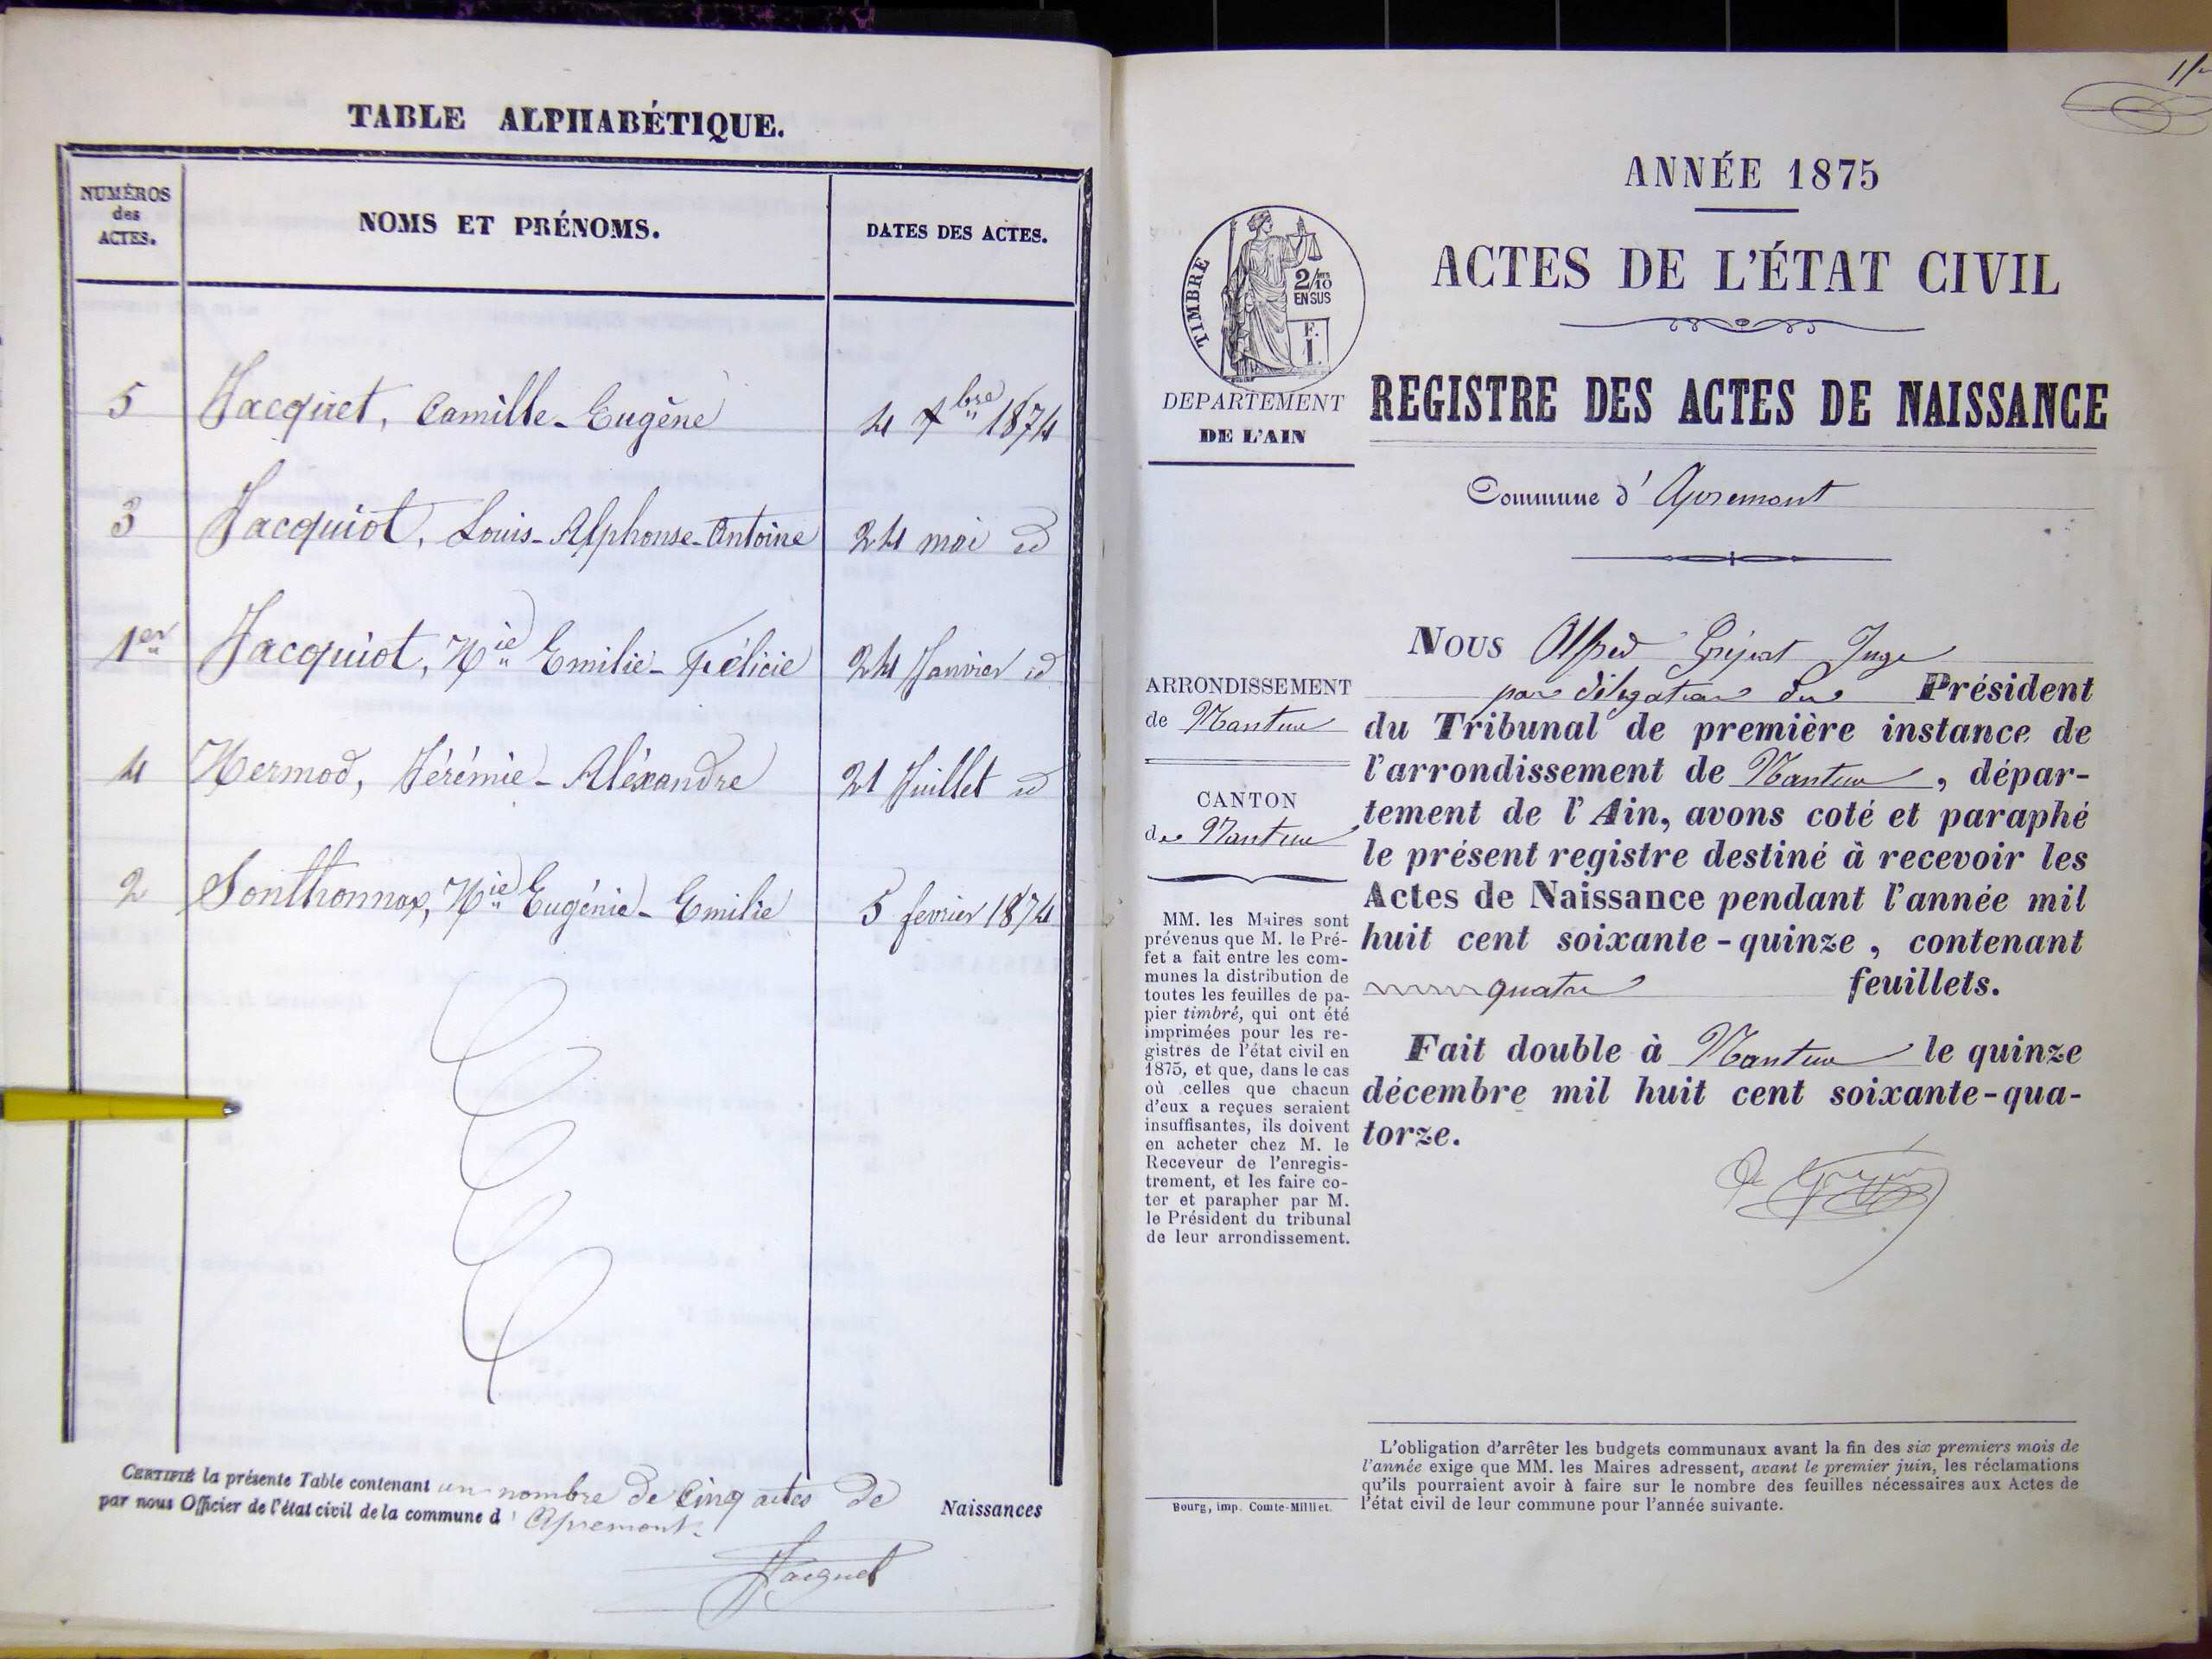 TABLE ALPHABÉTIQUE.
NUMÉROS
des
ACTES.
NOMS ET PRÉNOMS.
DATES DES ACTES.
5 Jacquet, Camille-Eugène 4 Xbre 1874
3 Jacquiot, Louis-Alphonse-Antoine 24 mai id
1er Jacquiot, Mie Emilie-Félicie 24 Janvier id
4 Mermod, Jérémie-Aléxandre 21 Juillet id
2 Sonthonnax, Mie Eugénie-Emilie 5 fevrier 1874
CERTIFIÉ la présente Table contenant un nombre de Cinq actes de Naissances
par nous Officier de l'état civil de la commune d'Apremont.
Jacquet
ANNÉE 1875
ACTES DE L'ÉTAT CIVIL
TIMBRE
2/10
EN SUS
F.
1.
DEPARTEMENT
DE L'AIN
REGISTRE DES ACTES DE NAISSANCE
Commune d'Apremont
ARRONDISSEMENT
de Nantua
CANTON
de Nantua
MM. les Maires sont
prévenus que M. le Pré-
fet a fait entre les com-
munes la distribution de
toutes les feuilles de pa-
pier timbré, qui ont été
imprimées pour les re-
gistres de l'état civil en
1875, et que, dans le cas
où celles que chacun
d'eux a reçues seraient
insuffisantes, ils doivent
en acheter chez M. le
Receveur de l'enregis-
trement, et les faire co-
ter et parapher par M.
le Président du tribunal
de leur arrondissement.
Bourg, imp. Comte-Milliet.
NOUS Alfred Juge
par délégation du Président
du Tribunal de première instance de
l'arrondissement de Nantua, dépar-
tement de l'Ain, avons coté et paraphé
le présent registre destiné à recevoir les
Actes de Naissance pendant l'année mil
huit cent soixante-quinze, contenant
quatre feuillets.
Fait double à Nantua le quinze
décembre mil huit cent soixante-qua-
torze.
L'obligation d'arrêter les budgets communaux avant la fin des six premiers mois de
l'année exige que MM. les Maires adressent, avant le premier juin, les réclamations
qu'ils pourraient avoir à faire sur le nombre des feuilles nécessaires aux Actes de
l'état civil de leur commune pour l'année suivante.